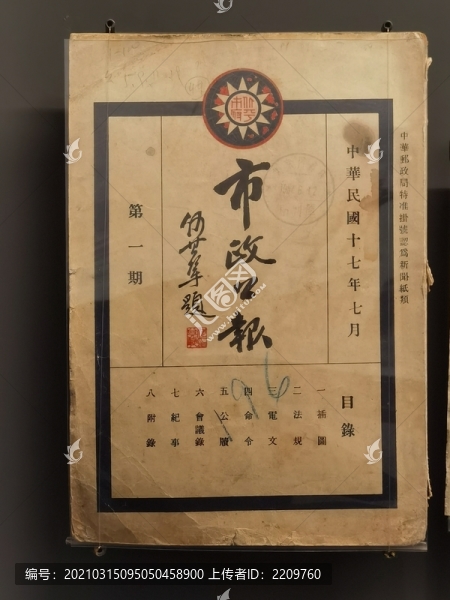 中華郵政局特准掛號認爲新聞紙類
中華民國十七年七月
市政公報
伍世肇題
第一期
目錄
一插圖
二法規
三電文
四命令
五公牘
六會議錄
七紀事
八附錄
196
汇图网
编号：20210315095050458900 上传者ID：2209760